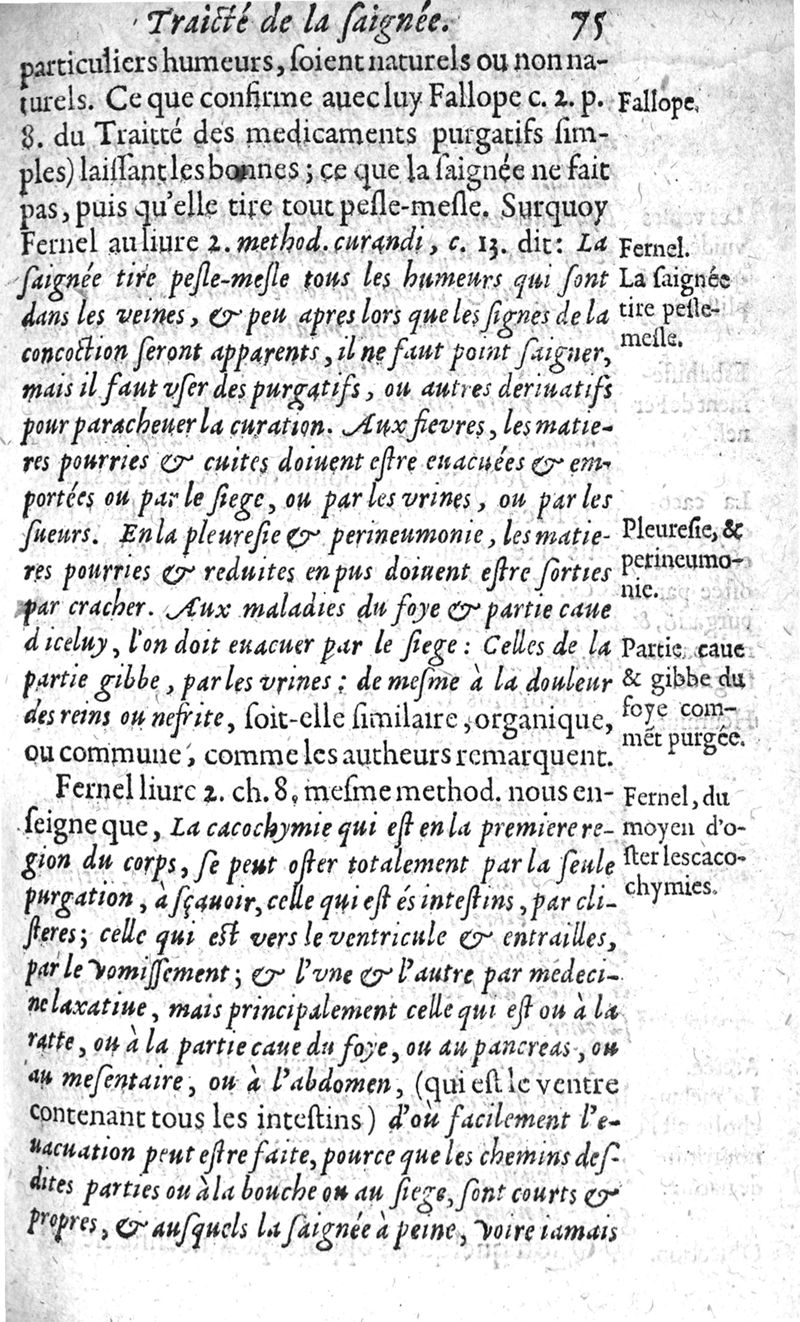 Traicté de la ſaignée. 75
particuliers humeurs, ſoient naturels ou non na-
turels. Ce que confirme auec luy Fallope c. 2. p.
8. du Traitté des medicaments purgatifs ſim-
ples) laiſſant les bonnes ; ce que la ſaignée ne fait
pas, puis qu'elle tire tout peſle-meſle. Surquoy
Fernel au liure 2. method. curandi, c. 13. dit : La
ſaignée tire peſle-meſle tous les humeurs qui ſont
dans les veines, & peu apres lors que les ſignes de la
concoction ſeront apparents, il ne faut point ſaigner,
mais il faut vſer des purgatifs, ou autres deriuatifs
pour paracheuer la curation. Aux fievres, les matie-
res pourries & cuites doiuent eſtre euacuées & em-
portées ou par le ſiege, ou par les vrines, ou par les
ſueurs. En la pleureſie & perineumonie, les matie-
res pourries & reduites en pus doiuent eſtre ſorties
par cracher. Aux maladies du foye & partie caue
d'iceluy, l'on doit euacuer par le ſiege : Celles de la
partie gibbe, par les vrines : de meſme à la douleur
des reins ou nefrite, ſoit-elle ſimilaire, organique,
ou commune, comme les autheurs remarquent.
Fernel liure 2. ch. 8. meſme method. nous en-
ſeigne que, La cacochymie qui eſt en la premiere re-
gion du corps, ſe peut oſter totalement par la ſeule
purgation, à ſçauoir, celle qui eſt és inteſtins, par cli-
ſteres ; celle qui eſt vers le ventricule & entrailles,
par le vomiſſement ; & l'vne & l'autre par medeci-
ne laxatiue, mais principalement celle qui eſt ou à la
ratte, ou à la partie caue du foye, ou au pancreas, ou
au meſentaire, ou à l'abdomen, (qui eſt le ventre
contenant tous les inteſtins) d'où facilement l'e-
uacuation peut eſtre faite, pource que les chemins deſ-
dites parties ou à la bouche ou au ſiege, ſont courts &
propres, & auſquels la ſaignée à peine, voire iamais
Fallope.
Fernel.
La ſaignée
tire peſle-
meſle.
Pleureſie, &
perineumo-
nie.
Partie caue
& gibbe du
foye com-
mēt purgée.
Fernel, du
moyen d'o-
ſter les caco-
chymies.